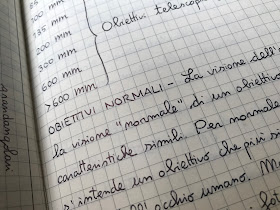 135 mm
200 mm
300 mm
600 mm
>600 mm
Obiettivi telescopi
OBIETTIVI NORMALI.- La visione dell'
la visione "normale" di un obiettivo
caratteristiche simili. Per normale
s'intende un obiettivo che più si
occhio umano.
anandamplan